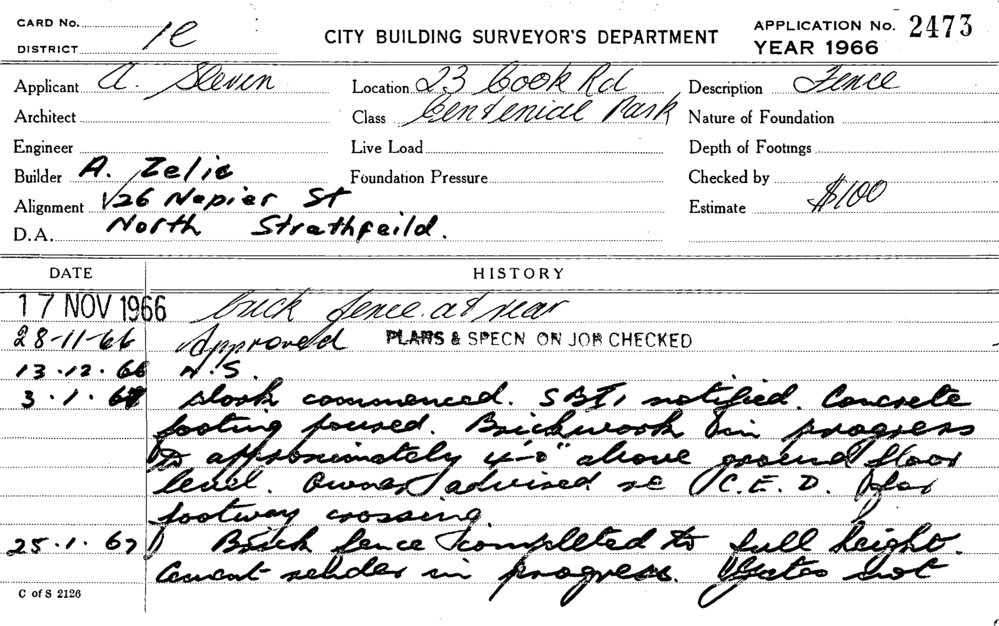 CARD No.
DISTRICT 1C
CITY BUILDING SURVEYOR'S DEPARTMENT
APPLICATION No. 2473
YEAR 1966
Applicant A. Sleven
Location 23 Cook Rd
Description Fence
Architect
Class Centenial Park
Nature of Foundation
Engineer
Live Load
Depth of Footings
Builder A. Zelic
Foundation Pressure
Checked by
Alignment 126 Napier St
Estimate $100
D.A. North Strathfeild.
DATE
HISTORY
17 NOV 1966 brick fence at rear
28-11-66 Approved PLANS & SPECN ON JOB CHECKED
13.12.66 N.S.
3.1.67 Work commenced. SBI, notified. Concrete
footing poured. Brickwork in progress
to approximately 4'-0" above ground floor
level. Owner advised re C.E.D. for
footway crossing
25.1.67 Brick fence completed to full height.
Cement render in progress. Gates not
C of S 2126